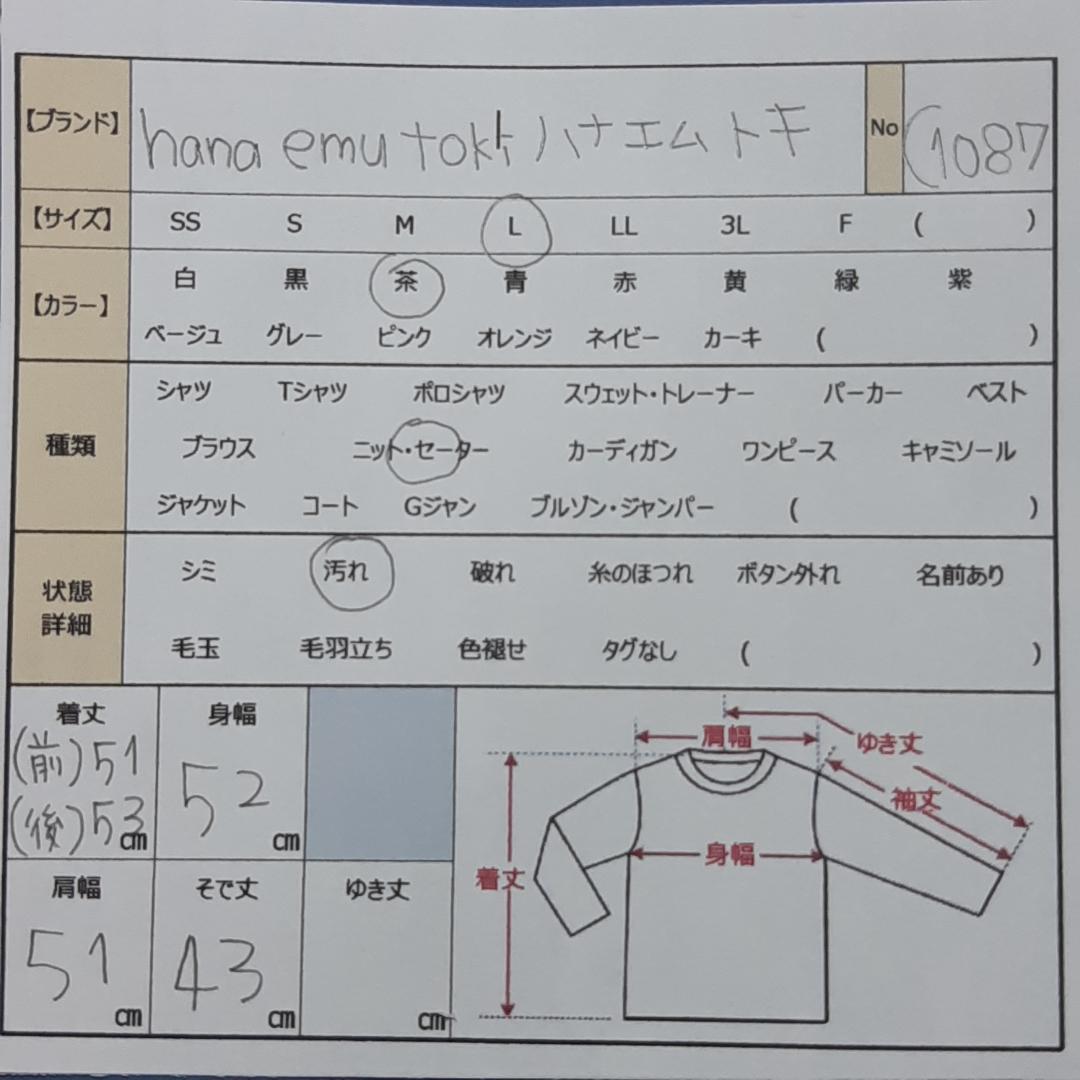 【ブランド】 hana emu toki ハナエムトキ No (1087
【サイズ】 SS S M L LL 3L F ( )
【カラー】 白 黒 茶 青 赤 黄 緑 紫
ベージュ グレー ピンク オレンジ ネイビー カーキ ( )
種類 シャツ Tシャツ ポロシャツ スウェット・トレーナー パーカー ベスト
ブラウス ニット・セーター カーディガン ワンピース キャミソール
ジャケット コート Gジャン ブルゾン・ジャンパー ( )
状態
詳細
シミ 汚れ 破れ 糸のほつれ ボタン外れ 名前あり
毛玉 毛羽立ち 色褪せ タグなし ( )
着丈 身幅
(前)51
(後)53 cm
52 cm
肩幅 そで丈 ゆき丈
51 cm 43 cm cm
肩幅 ゆき丈
袖丈
身幅
着丈